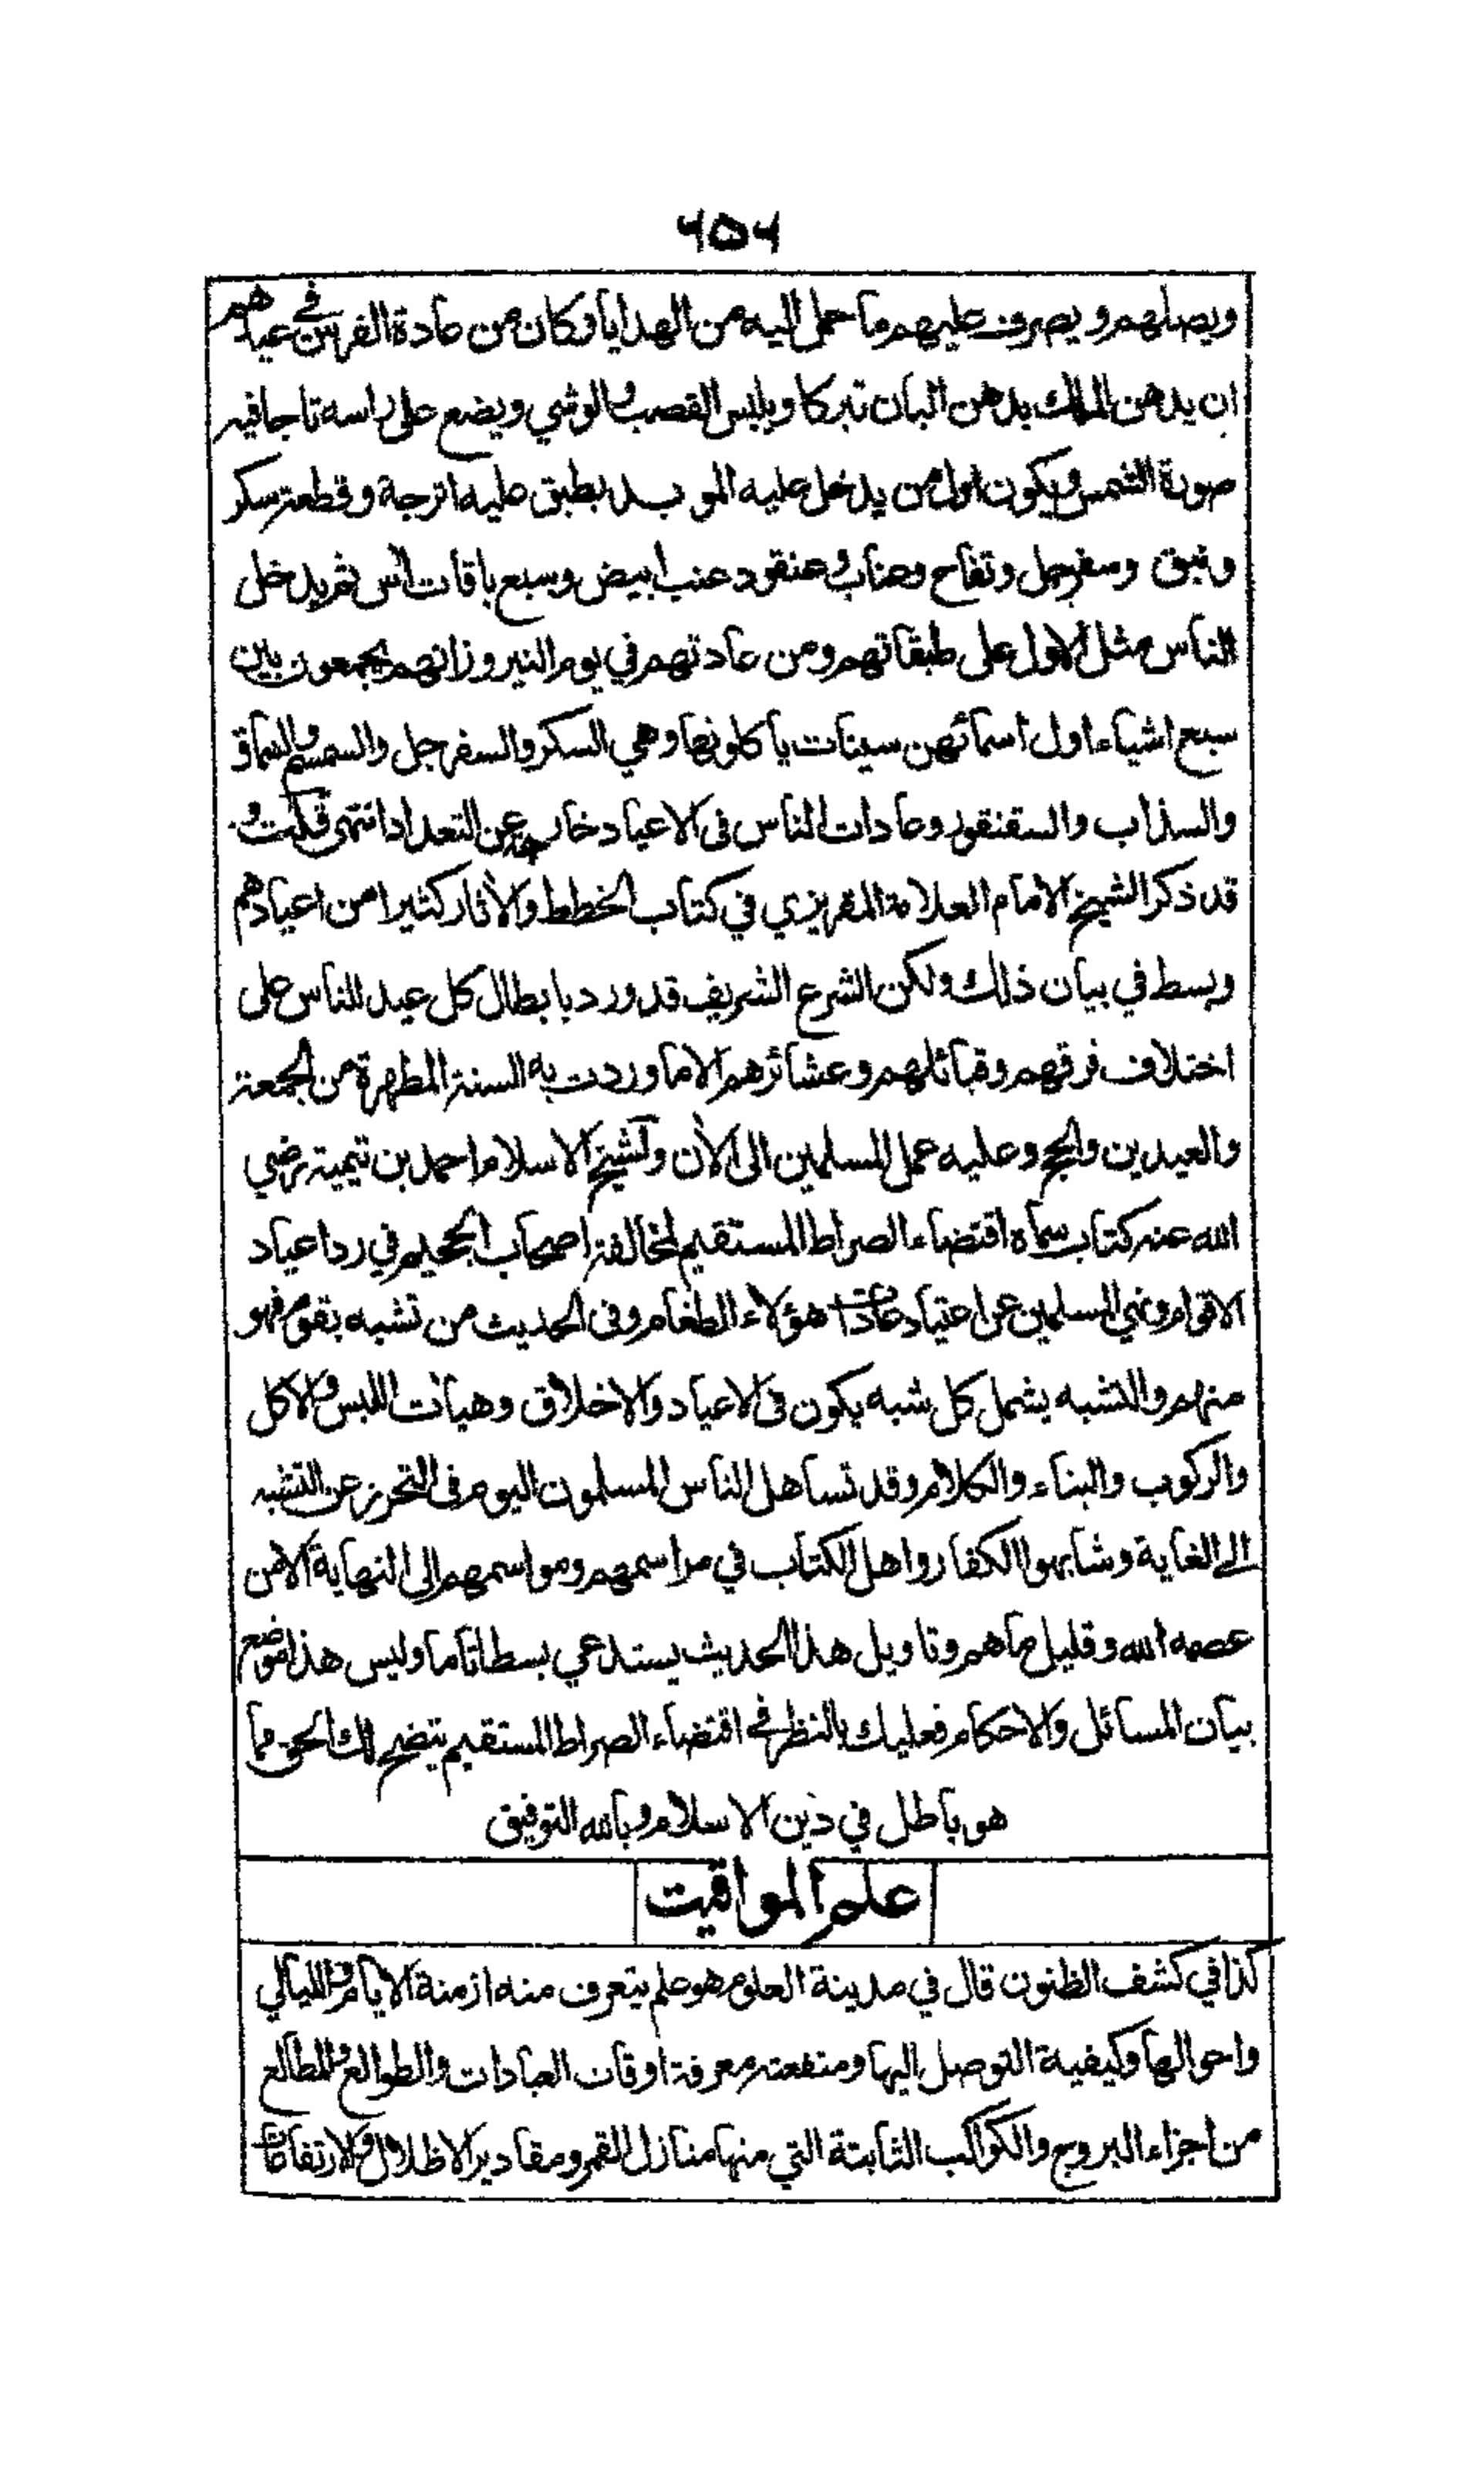 ٦٥٦
ويصلهم ويصرف عليهم ما حمل اليه من الهدايا وكان من عادة الفرس في عيدهم
ان يدهن الملك بدهن البان تبركا ويلبس القصب والوشي ويضع على راسه تاجا فيه
صورة الشمس ويكون اول من يدخل عليه الموبد بطبق عليه اترجة وقطعة سكر
ونبق وسفرجل وتفاح وعناب وعنقود عنب ابيض وسبع باقات آس ثم يدخل
الناس مثل الاول على طبقاتهم ومن عادتهم في يوم النيروز انهم يجمعون بين
سبع اشياء اول أسمائهن سينات يأكلونها وهي السكر والسفرجل والسمسم والسماق
والسذاب والسقنقور وعادات الناس فى الاعياد خارجة عن التعداد انتهى قلت و
قد ذكر الشيخ الامام العلامة المقريزي في كتاب الخطط والآثار كثيرا من اعيادهم
وبسط في بيان ذلك ولكن الشرع الشريف قد ورد بابطال كل عيد للناس على
اختلاف فرقهم وقبائلهم وعشائرهم الا ما وردت به السنة المطهرة من الجمعة
والعيدين والحج وعليه عمل المسلمين الى الآن ولشيخ الاسلام احمد بن تيمية رضي
الله عنه كتاب سماه اقتضاء الصراط المستقيم لمخالفة اصحاب الجحيم في رد اعياد
الاقوام ونهي المسلمين عن اعتياد عادات هؤلاء الطغام وفى الحديث من تشبه بقوم فهو
منهم والتشبه يشمل كل شبه يكون فى الاعياد والاخلاق وهيآت اللبس والاكل
والركوب والبناء والكلام وقد تساهل الناس المسلمون اليوم فى التحرز عن التشبه
الى الغاية وشابهوا الكفار واهل الكتاب في مراسمهم ومواسمهم الى النهاية الا من
عصمه الله وقليل ما هم وتاويل هذا الحديث يستدعي بسطا تاما وليس هذا موضع
بيان المسائل والاحكام فعليك بالنظر في اقتضاء الصراط المستقيم يتضح لك الحق مما
هو باطل في دين الاسلام وبالله التوفيق
علم المواقيت
كذا في كشف الظنون قال في مدينة العلوم هو علم يتعرف منه ازمنة الايام والليالي
واحوالها وكيفية التوصل اليها ومنفعته معرفة اوقات العبادات والطوالع والمطالع
من اجزاء البروج والكواكب الثابتة التي منها منازل القمر ومقادير الاظلال والارتفاعات